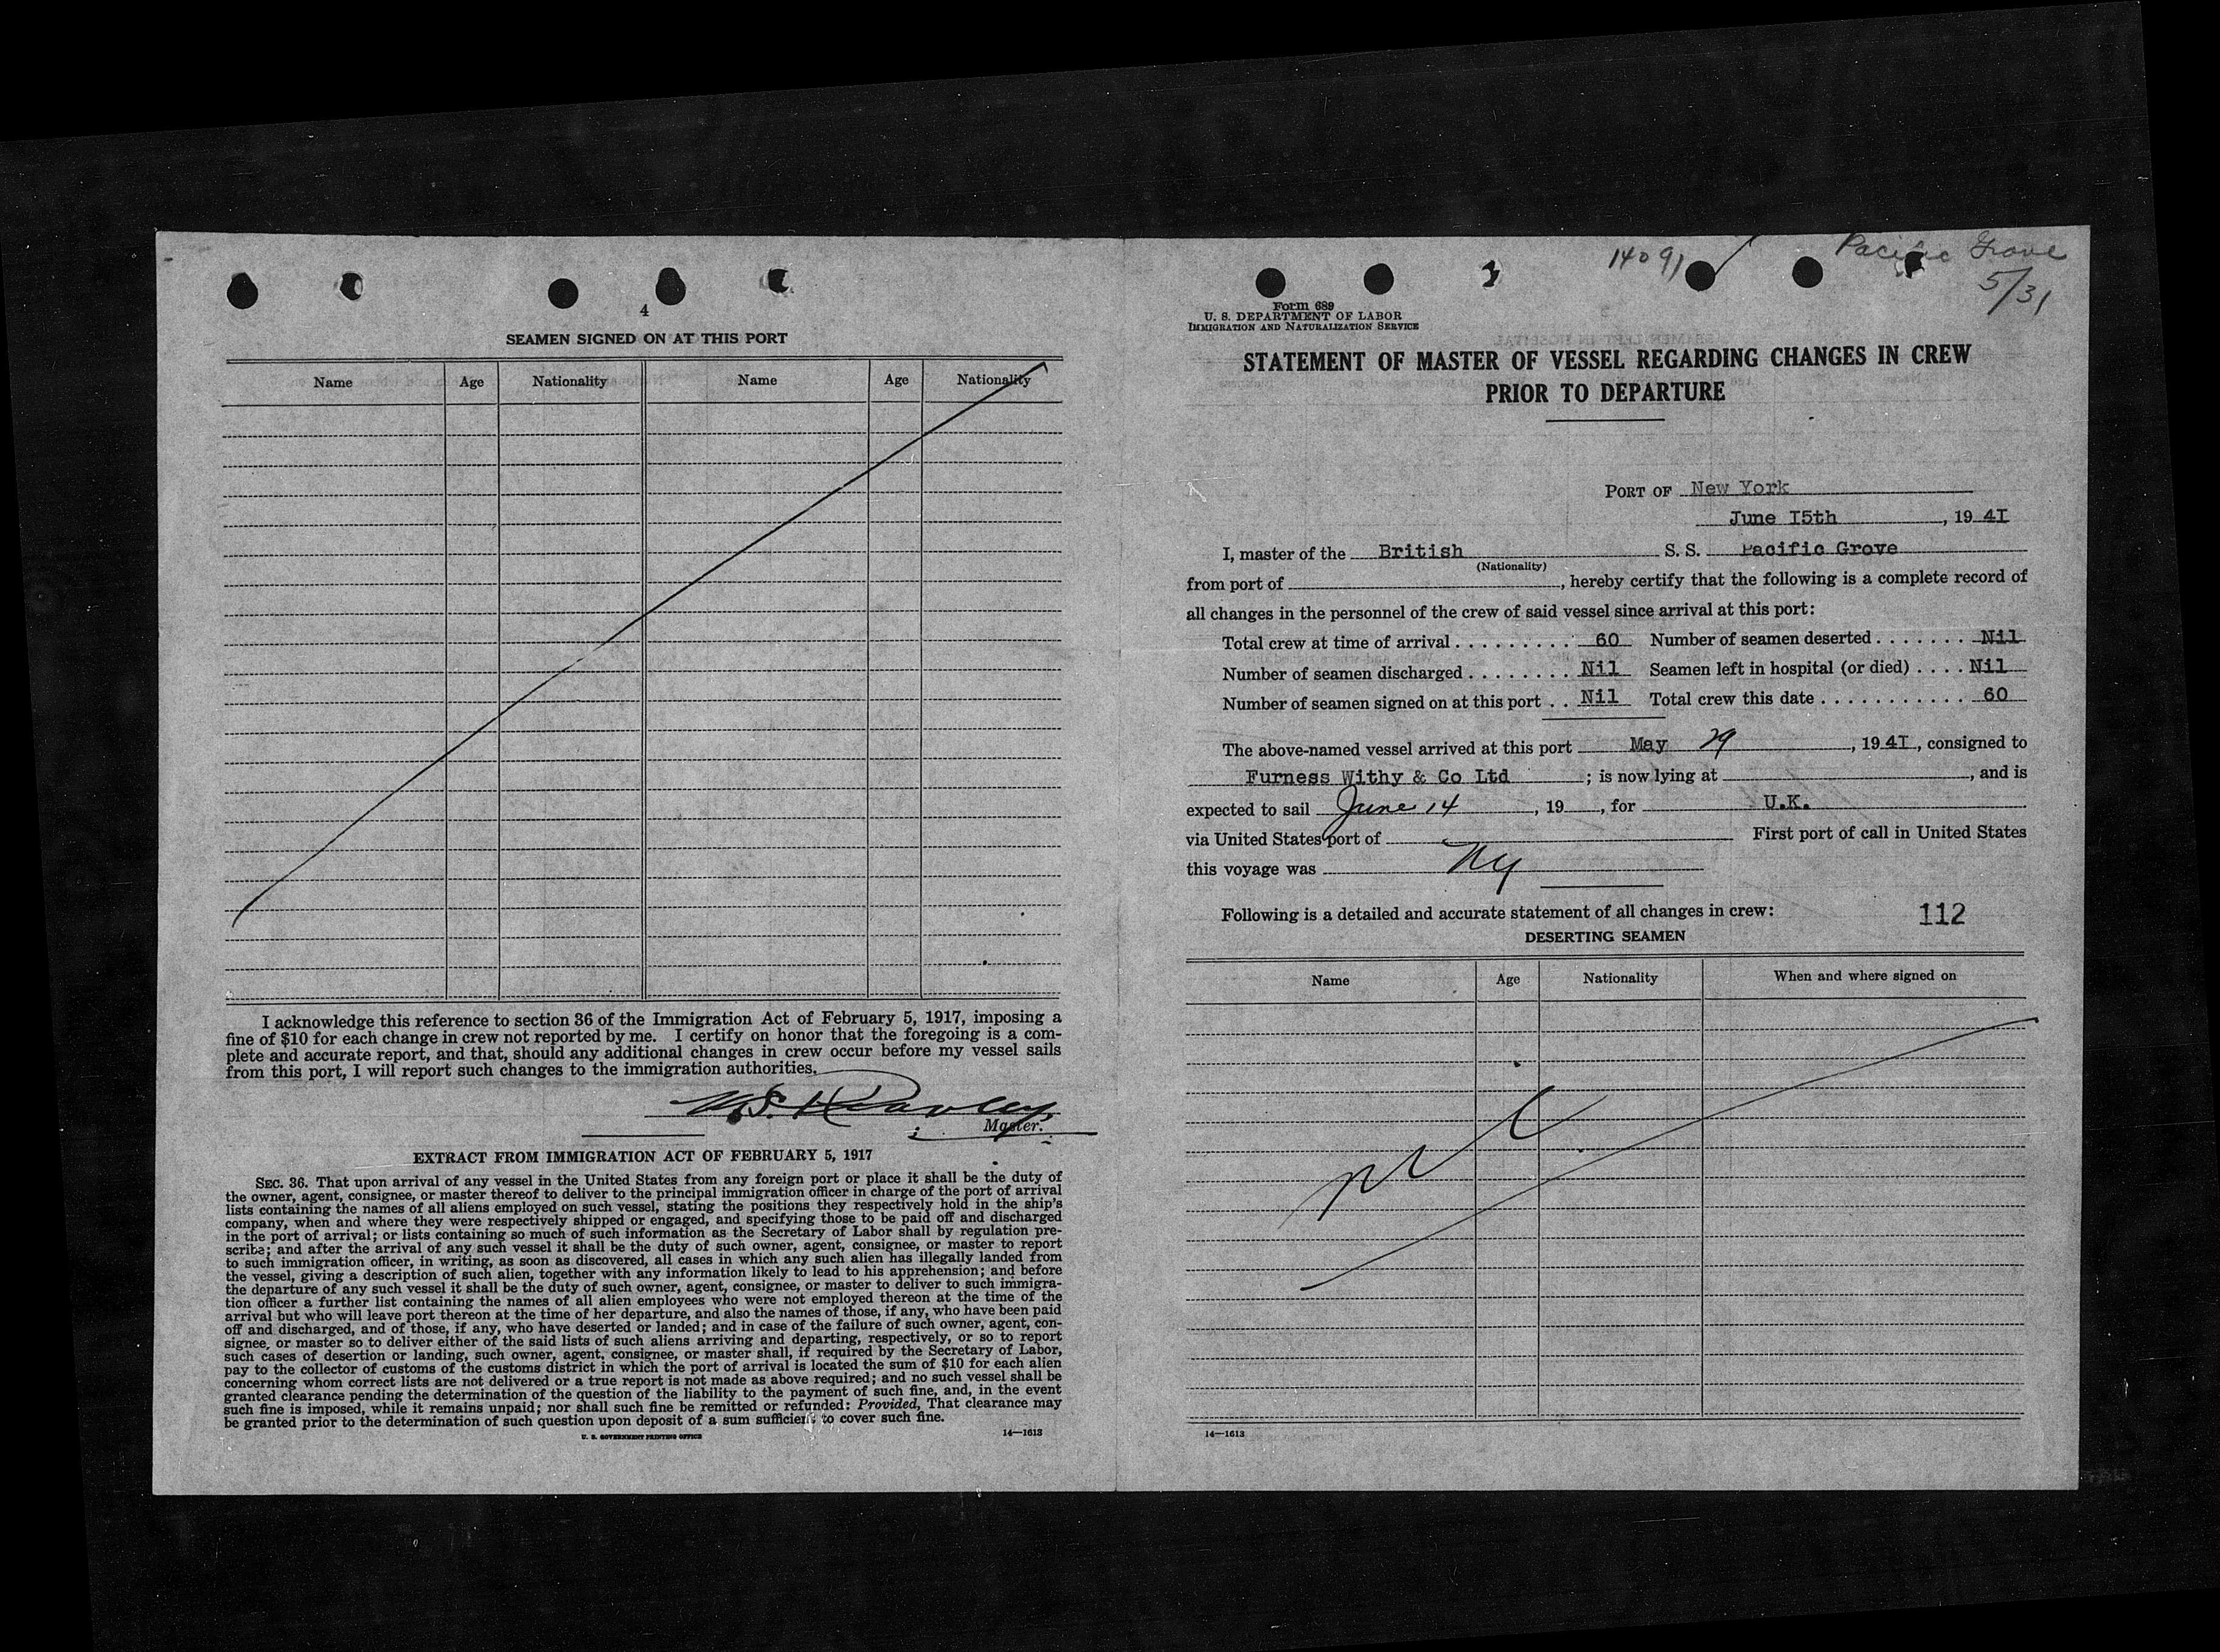 4
SEAMEN SIGNED ON AT THIS PORT
Name Age Nationality Name Age Nationality
I acknowledge this reference to section 36 of the Immigration Act of February 5, 1917, imposing a
fine of $10 for each change in crew not reported by me. I certify on honor that the foregoing is a com-
plete and accurate report, and that, should any additional changes in crew occur before my vessel sails
from this port, I will report such changes to the immigration authorities.
Master.
EXTRACT FROM IMMIGRATION ACT OF FEBRUARY 5, 1917
SEC. 36. That upon arrival of any vessel in the United States from any foreign port or place it shall be the duty of
the owner, agent, consignee, or master thereof to deliver to the principal immigration officer in charge of the port of arrival
lists containing the names of all aliens employed on such vessel, stating the positions they respectively hold in the ship's
company, when and where they were respectively shipped or engaged, and specifying those to be paid off and discharged
in the port of arrival; or lists containing so much of such information as the Secretary of Labor shall by regulation pre-
scribe; and after the arrival of any such vessel it shall be the duty of such owner, agent, consignee, or master to report
to such immigration officer, in writing, as soon as discovered, all cases in which any such alien has illegally landed from
the vessel, giving a description of such alien, together with any information likely to lead to his apprehension; and before
the departure of any such vessel it shall be the duty of such owner, agent, consignee, or master to deliver to such immigra-
tion officer a further list containing the names of all alien employees who were not employed thereon at the time of the
arrival but who will leave port thereon at the time of her departure, and also the names of those, if any, who have been paid
off and discharged, and of those, if any, who have deserted or landed; and in case of the failure of such owner, agent, con-
signee, or master so to deliver either of the said lists of such aliens arriving and departing, respectively, or so to report
such cases of desertion or landing, such owner, agent, consignee, or master shall, if required by the Secretary of Labor,
pay to the collector of customs of the customs district in which the port of arrival is located the sum of $10 for each alien
concerning whom correct lists are not delivered or a true report is not made as above required; and no such vessel shall be
granted clearance pending the determination of the question of the liability to the payment of such fine, and, in the event
such fine is imposed, while it remains unpaid; nor shall such fine be remitted or refunded: Provided, That clearance may
be granted prior to the determination of such question upon deposit of a sum sufficient to cover such fine.
U. S. GOVERNMENT PRINTING OFFICE 14—1613
14091 Pacific Grove
5/31
Form 689
U. S. DEPARTMENT OF LABOR
IMMIGRATION AND NATURALIZATION SERVICE
STATEMENT OF MASTER OF VESSEL REGARDING CHANGES IN CREW
PRIOR TO DEPARTURE
PORT OF New York
June I5th, 19 4I
I, master of the British S. S. Pacific Grove
(Nationality)
from port of , hereby certify that the following is a complete record of
all changes in the personnel of the crew of said vessel since arrival at this port:
Total crew at time of arrival . . . . . . . . . 60 Number of seamen deserted . . . . . . . Nil
Number of seamen discharged . . . . . . . . Nil Seamen left in hospital (or died) . . . . Nil
Number of seamen signed on at this port . . Nil Total crew this date . . . . . . . . . . . 60
The above-named vessel arrived at this port May 29, 19 4I, consigned to
Furness Withy & Co Ltd ; is now lying at , and is
expected to sail June 14, 19 , for U.K.
via United States port of First port of call in United States
this voyage was NY
Following is a detailed and accurate statement of all changes in crew: 112
DESERTING SEAMEN
Name Age Nationality When and where signed on
14—1613